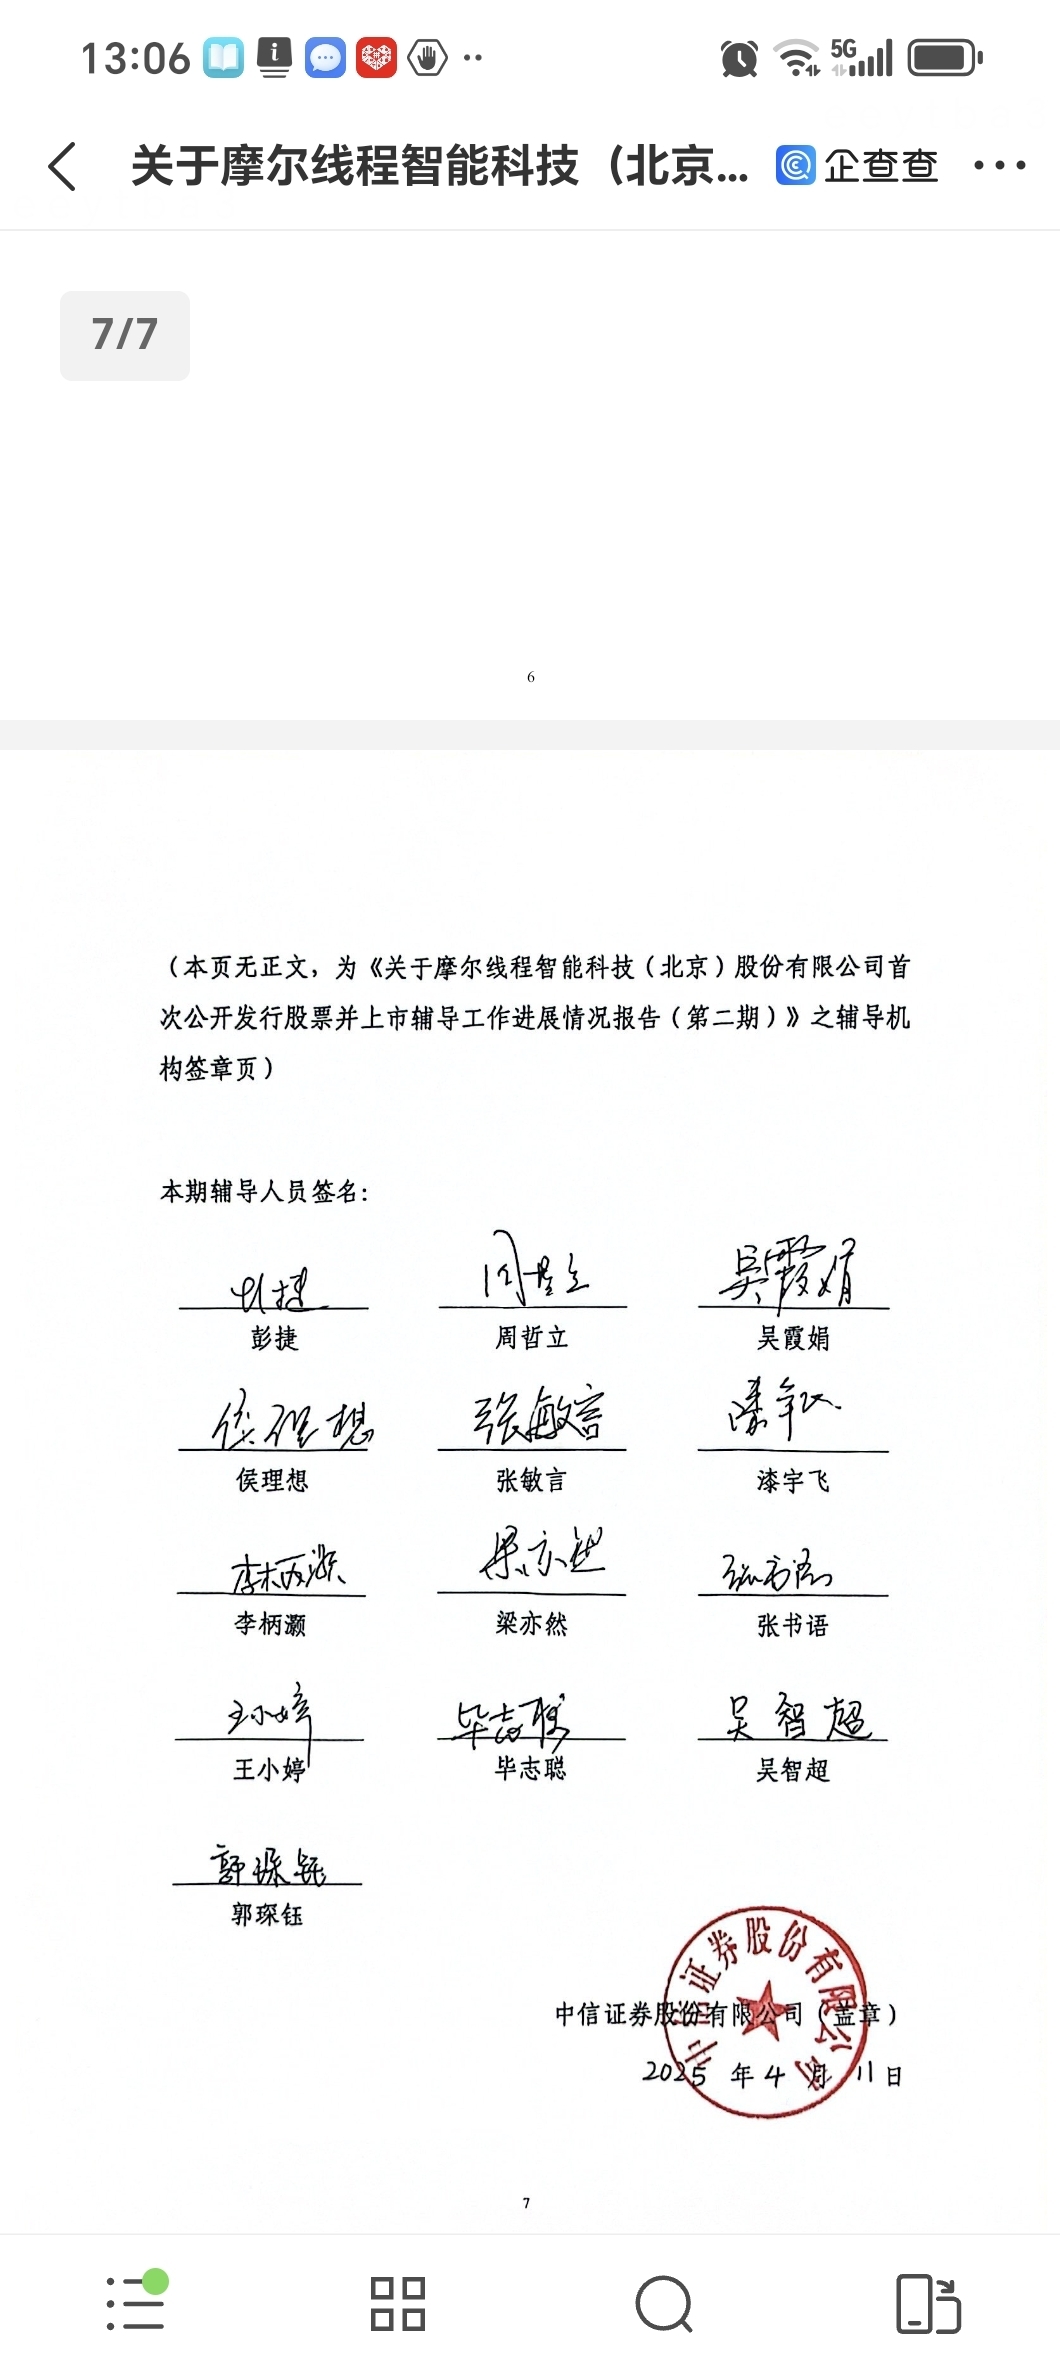 13:06
5G
关于摩尔线程智能科技（北京... 企查查
7/7
6
（本页无正文，为《关于摩尔线程智能科技（北京）股份有限公司首
次公开发行股票并上市辅导工作进展情况报告（第二期）》之辅导机
构签章页）
本期辅导人员签名：
彭捷 周哲立 吴霞娟
彭捷 周哲立 吴霞娟
侯理想 张敏言 漆宇飞
侯理想 张敏言 漆宇飞
李柄灏 梁亦然 张书语
李柄灏 梁亦然 张书语
王小婷 毕志聪 吴智超
王小婷 毕志聪 吴智超
郭琛钰
郭琛钰
中信证券股份有限公司
中信证券股份有限公司（盖章）
2025 年 4 月 11 日
7